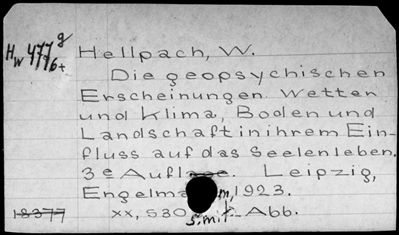 Hw 477g/6+
Hellpach, W.
Die geopsychischen
Erscheinungen Wetter
und Klima, Boden und
Landschaft in ihrem Ein-
fluss auf das Seelenleben.
3e Auflage. Leipzig,
Engelmann, 1923.
18377
xx, 530 s. m. f. Abb.